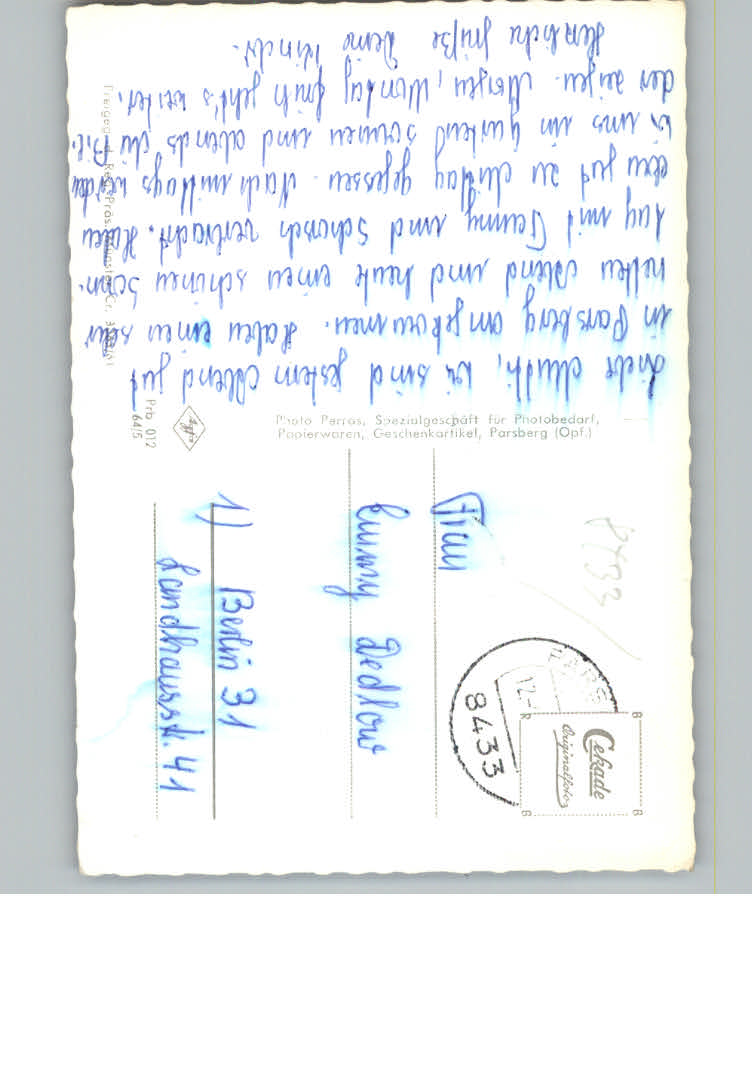 Liebe Mutti, wir sind gestern Abend gut
in Parsberg angekommen. Haben einen sehr
netten Abend und heute einen schönen Sonn-
tag mit Tammy und Schorsch verbracht. Haben
sehr gut zu Mittag gegessen. Nachmittags werden
wir uns im Garten sonnen und abends die
der zeigen. Morgen, Montag früh geht's weiter.
Herzliche Grüße Deine Kinder.
Photo Perras, Spezialgeschäft für Photobedarf,
Papierwaren, Geschenkartikel, Parsberg (Opf.)
Agfa
Prb 012
64/5
Frau
Emmy Dedlow
1) Berlin 31
Landhausstr. 41
8433
8433
12.-
Cekade
Originalfotos